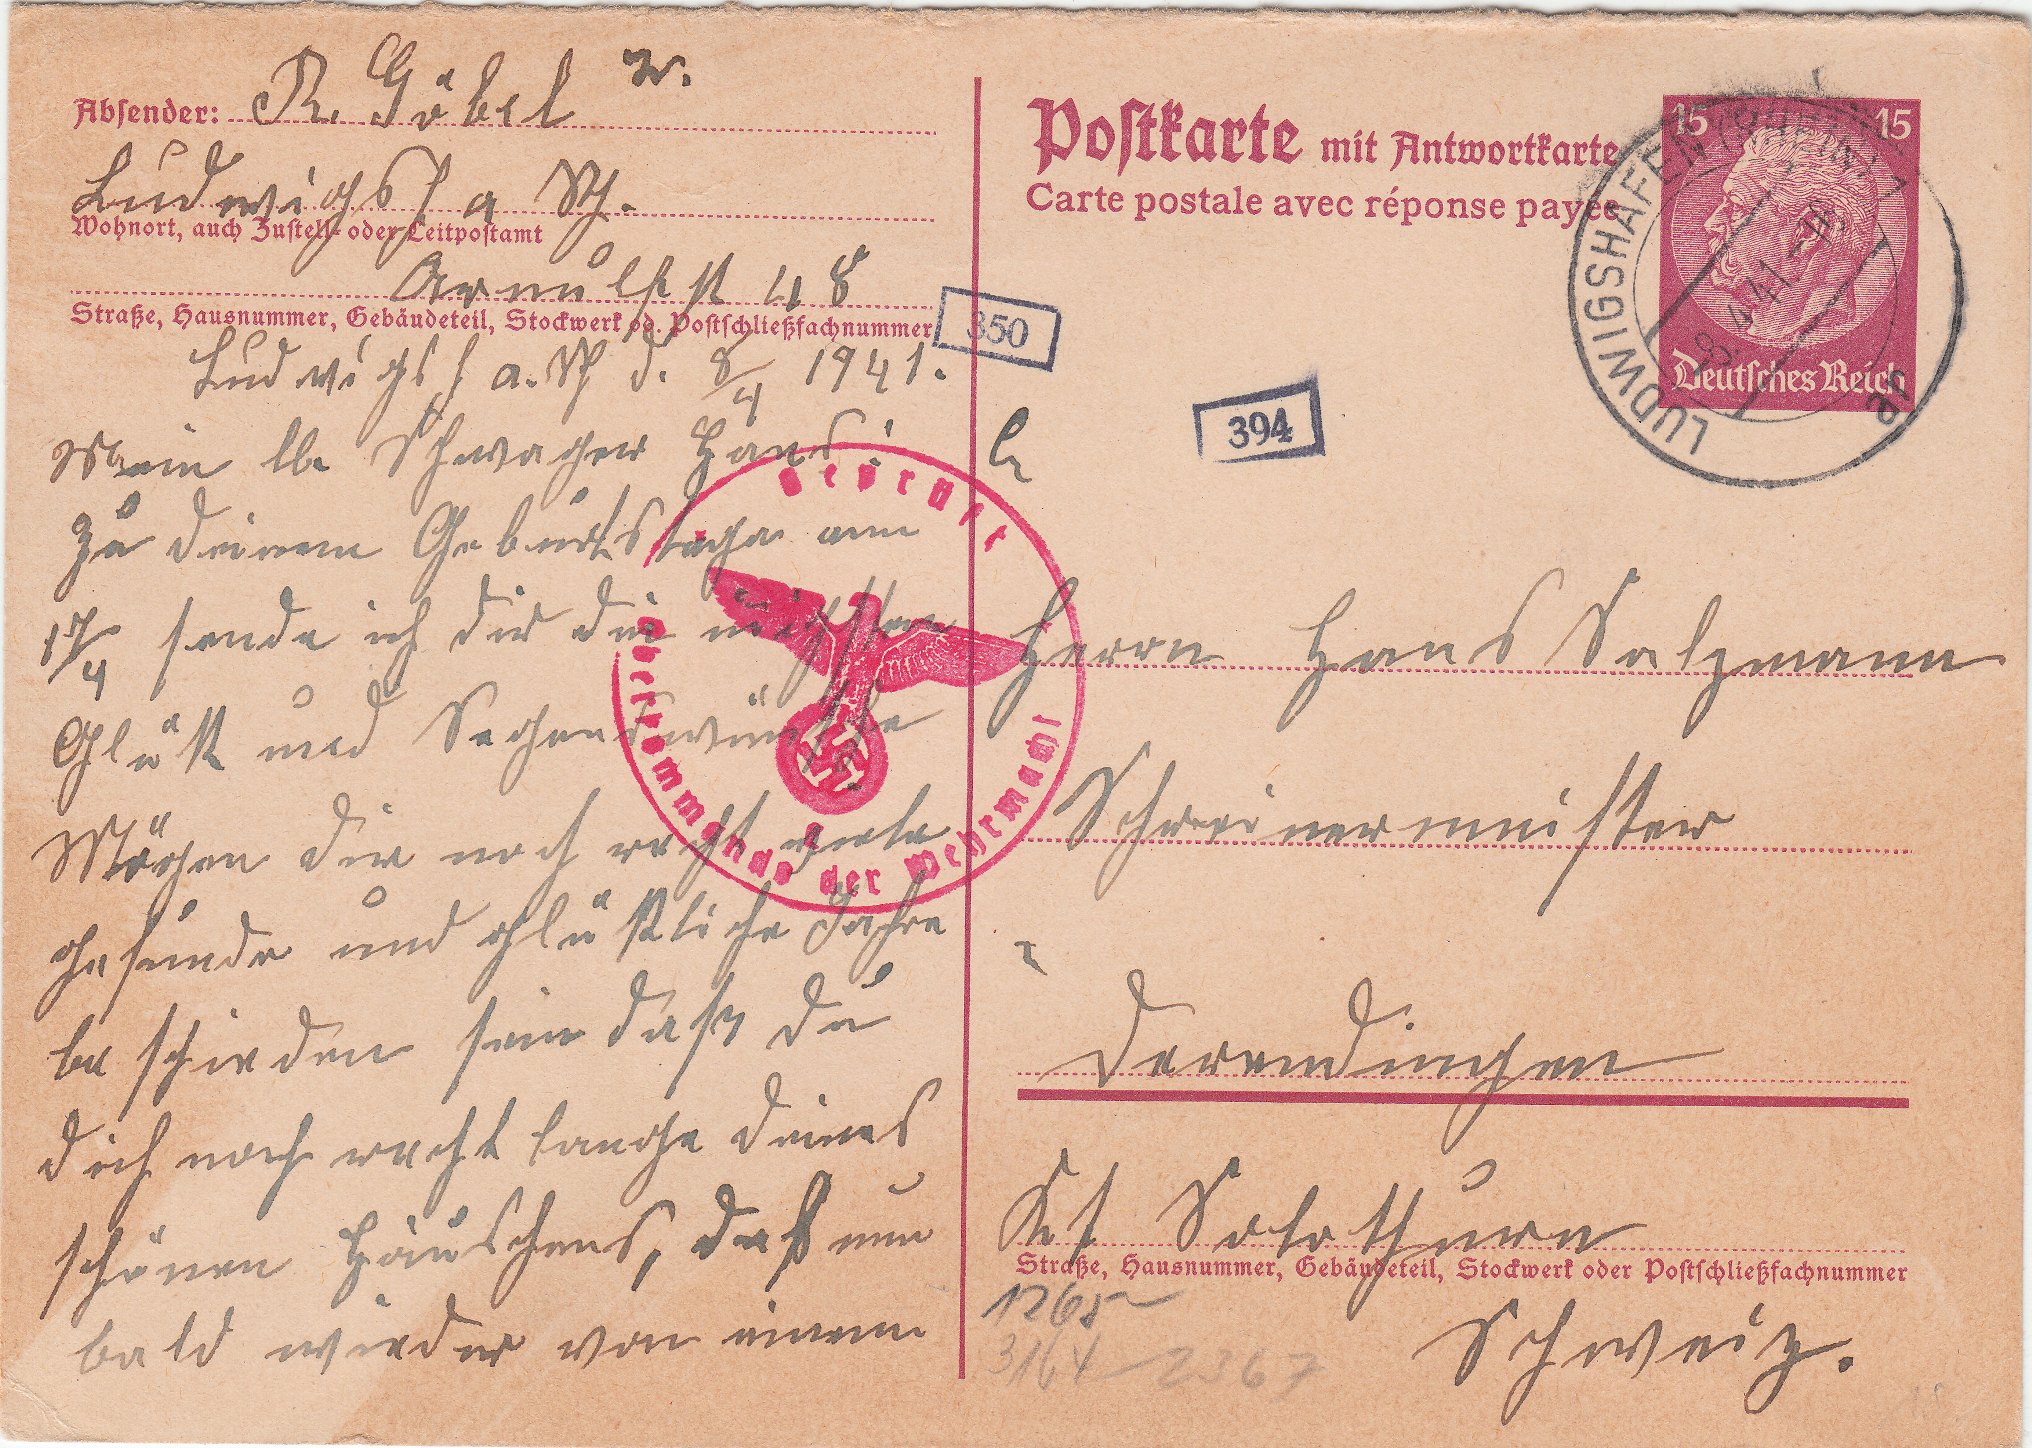 Absender: R. Göbel w.
Ludwigshf a Rh.
Wohnort, auch Zustell- oder Leitpostamt
Arnulfst 48
Straße, Hausnummer, Gebäudeteil, Stockwerk od. Postschließfachnummer
Ludwigshf a. Rh d. 8/4 1941.
Mein lb. Schwager Hans!
Zu deinem Geburtstage am
17/4 sende ich dir die
Glück und Segenswünsche
Mögen dir noch recht viele
gesunde und glückliche Jahre
beschieden sein daß du
dich noch recht lange deines
schönen Häuschens, das nun
bald wieder von einem
350
394
Geprüft
Oberkommando der Wehrmacht
Postkarte mit Antwortkarte
Carte postale avec réponse payée
15 15
Deutsches Reich
LUDWIGSHAFEN (RHEIN) 1
8.4.41
Herrn Hans Salzmann
Schreinermeister
Derendingen
Kt Solothurn
Straße, Hausnummer, Gebäudeteil, Stockwerk oder Postschließfachnummer
Schweiz.
1265
3164 2367